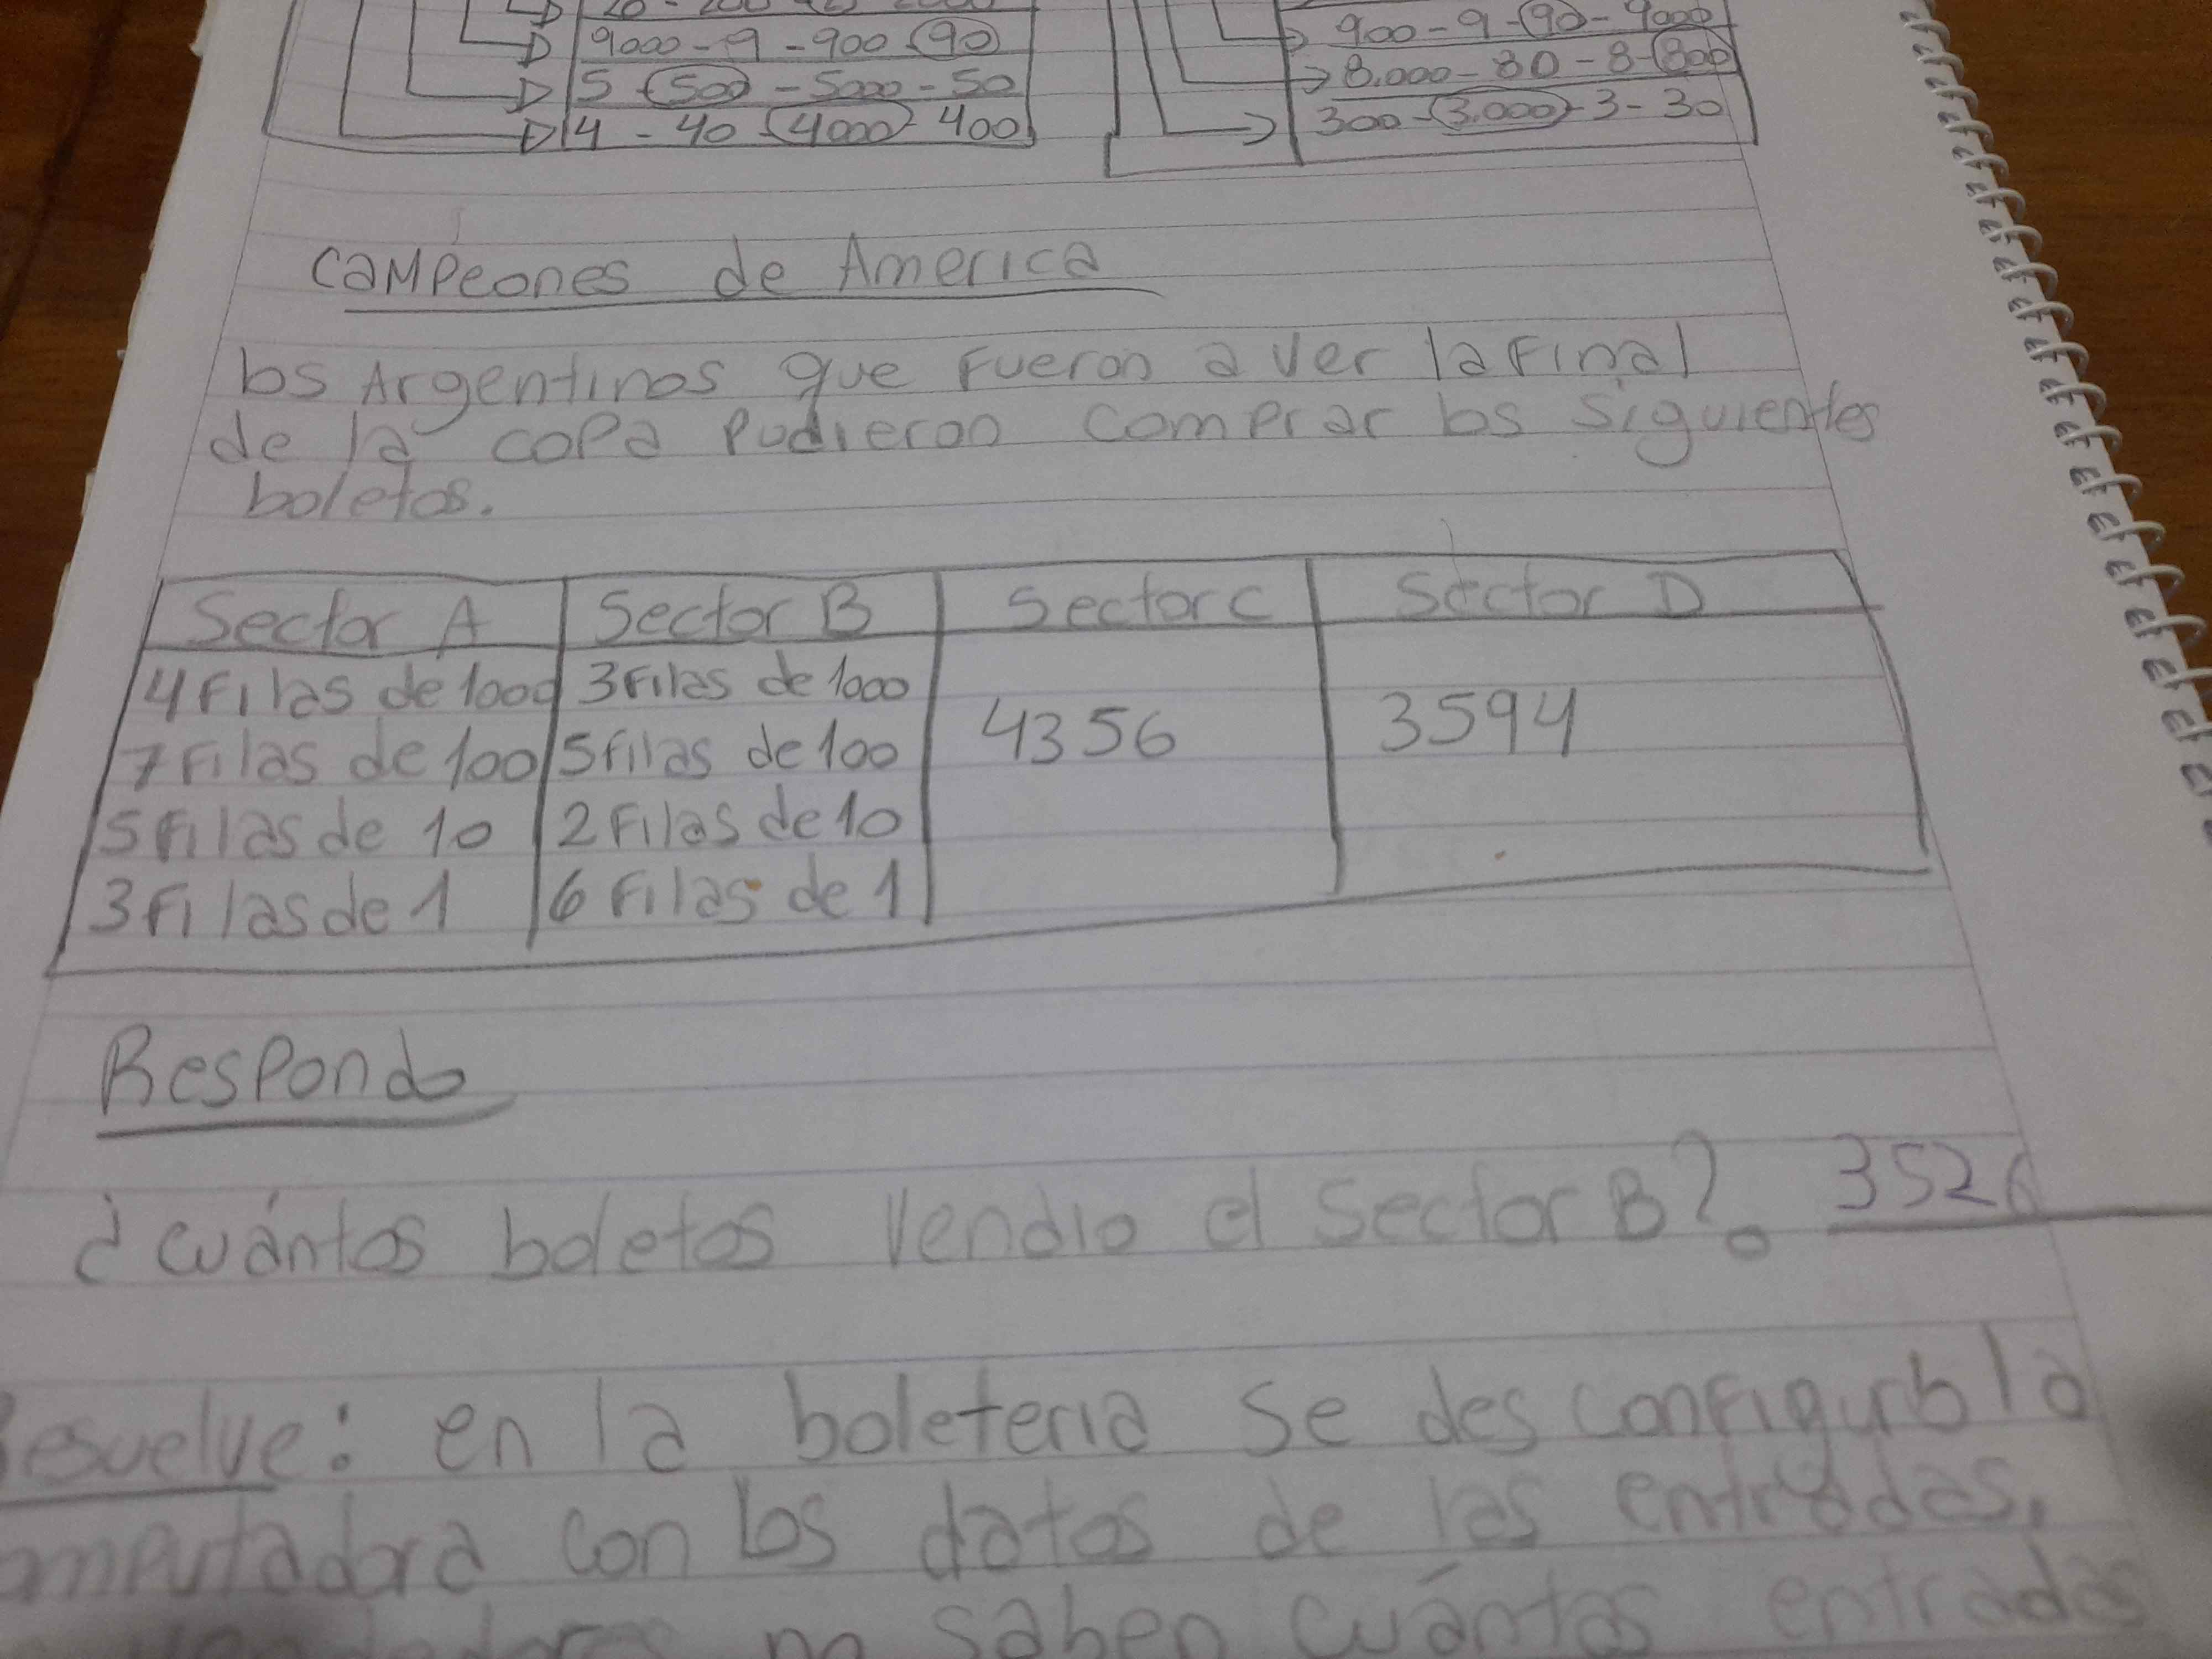 9000 - 9 - 900 - 90
900 - 9 - 90 - 9000
5 - 500 - 5000 - 50
8.000 - 80 - 8 - 800
4 - 40 - 4000 - 400
300 - 3.000 - 3 - 30
Campeones de America
los Argentinos que Fueron a ver la Final
de la copa Pudieron comprar los siguientes
boletos.
Sector A Sector B Sector C Sector D
4 Filas de 1000 3 Filas de 1000
4356 3594
7 Filas de 100 5 filas de 100
5 Filas de 10 2 Filas de 10
3 Filas de 1 6 Filas de 1
Respondo
¿cuántos boletos Vendio el Sector B?. 3526
Resuelve: en la boleteria se des configuro la
computadora con los datos de las entradas.
no saben cuántas entradas